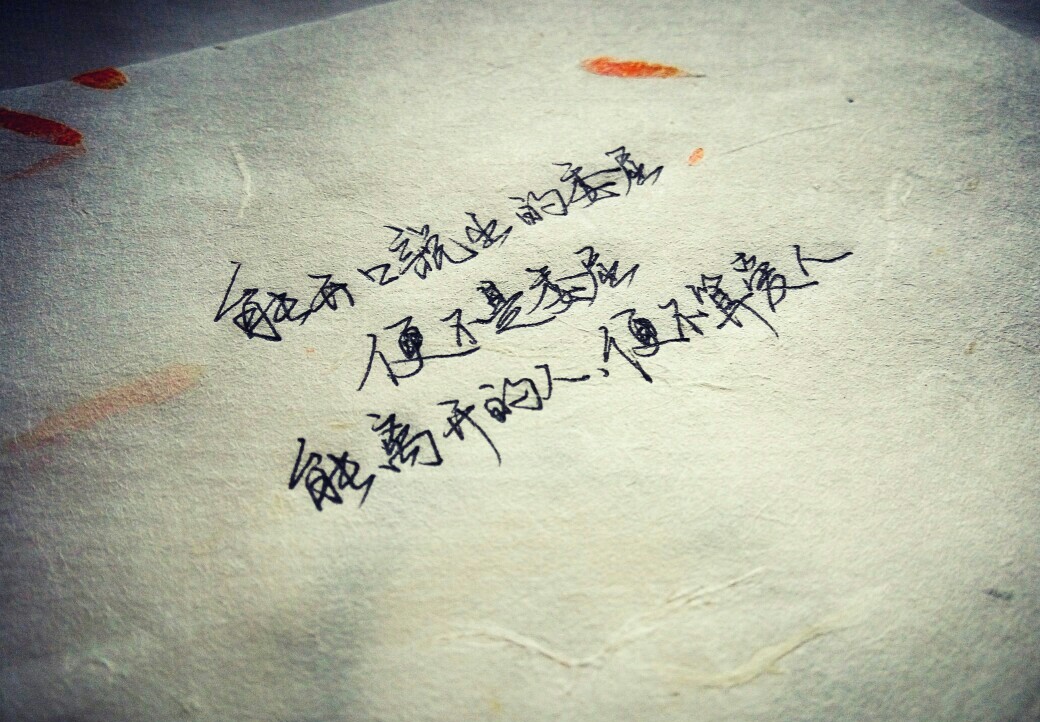 能开口説出的委屈
便不是委屈
能离开的人、便不算爱人